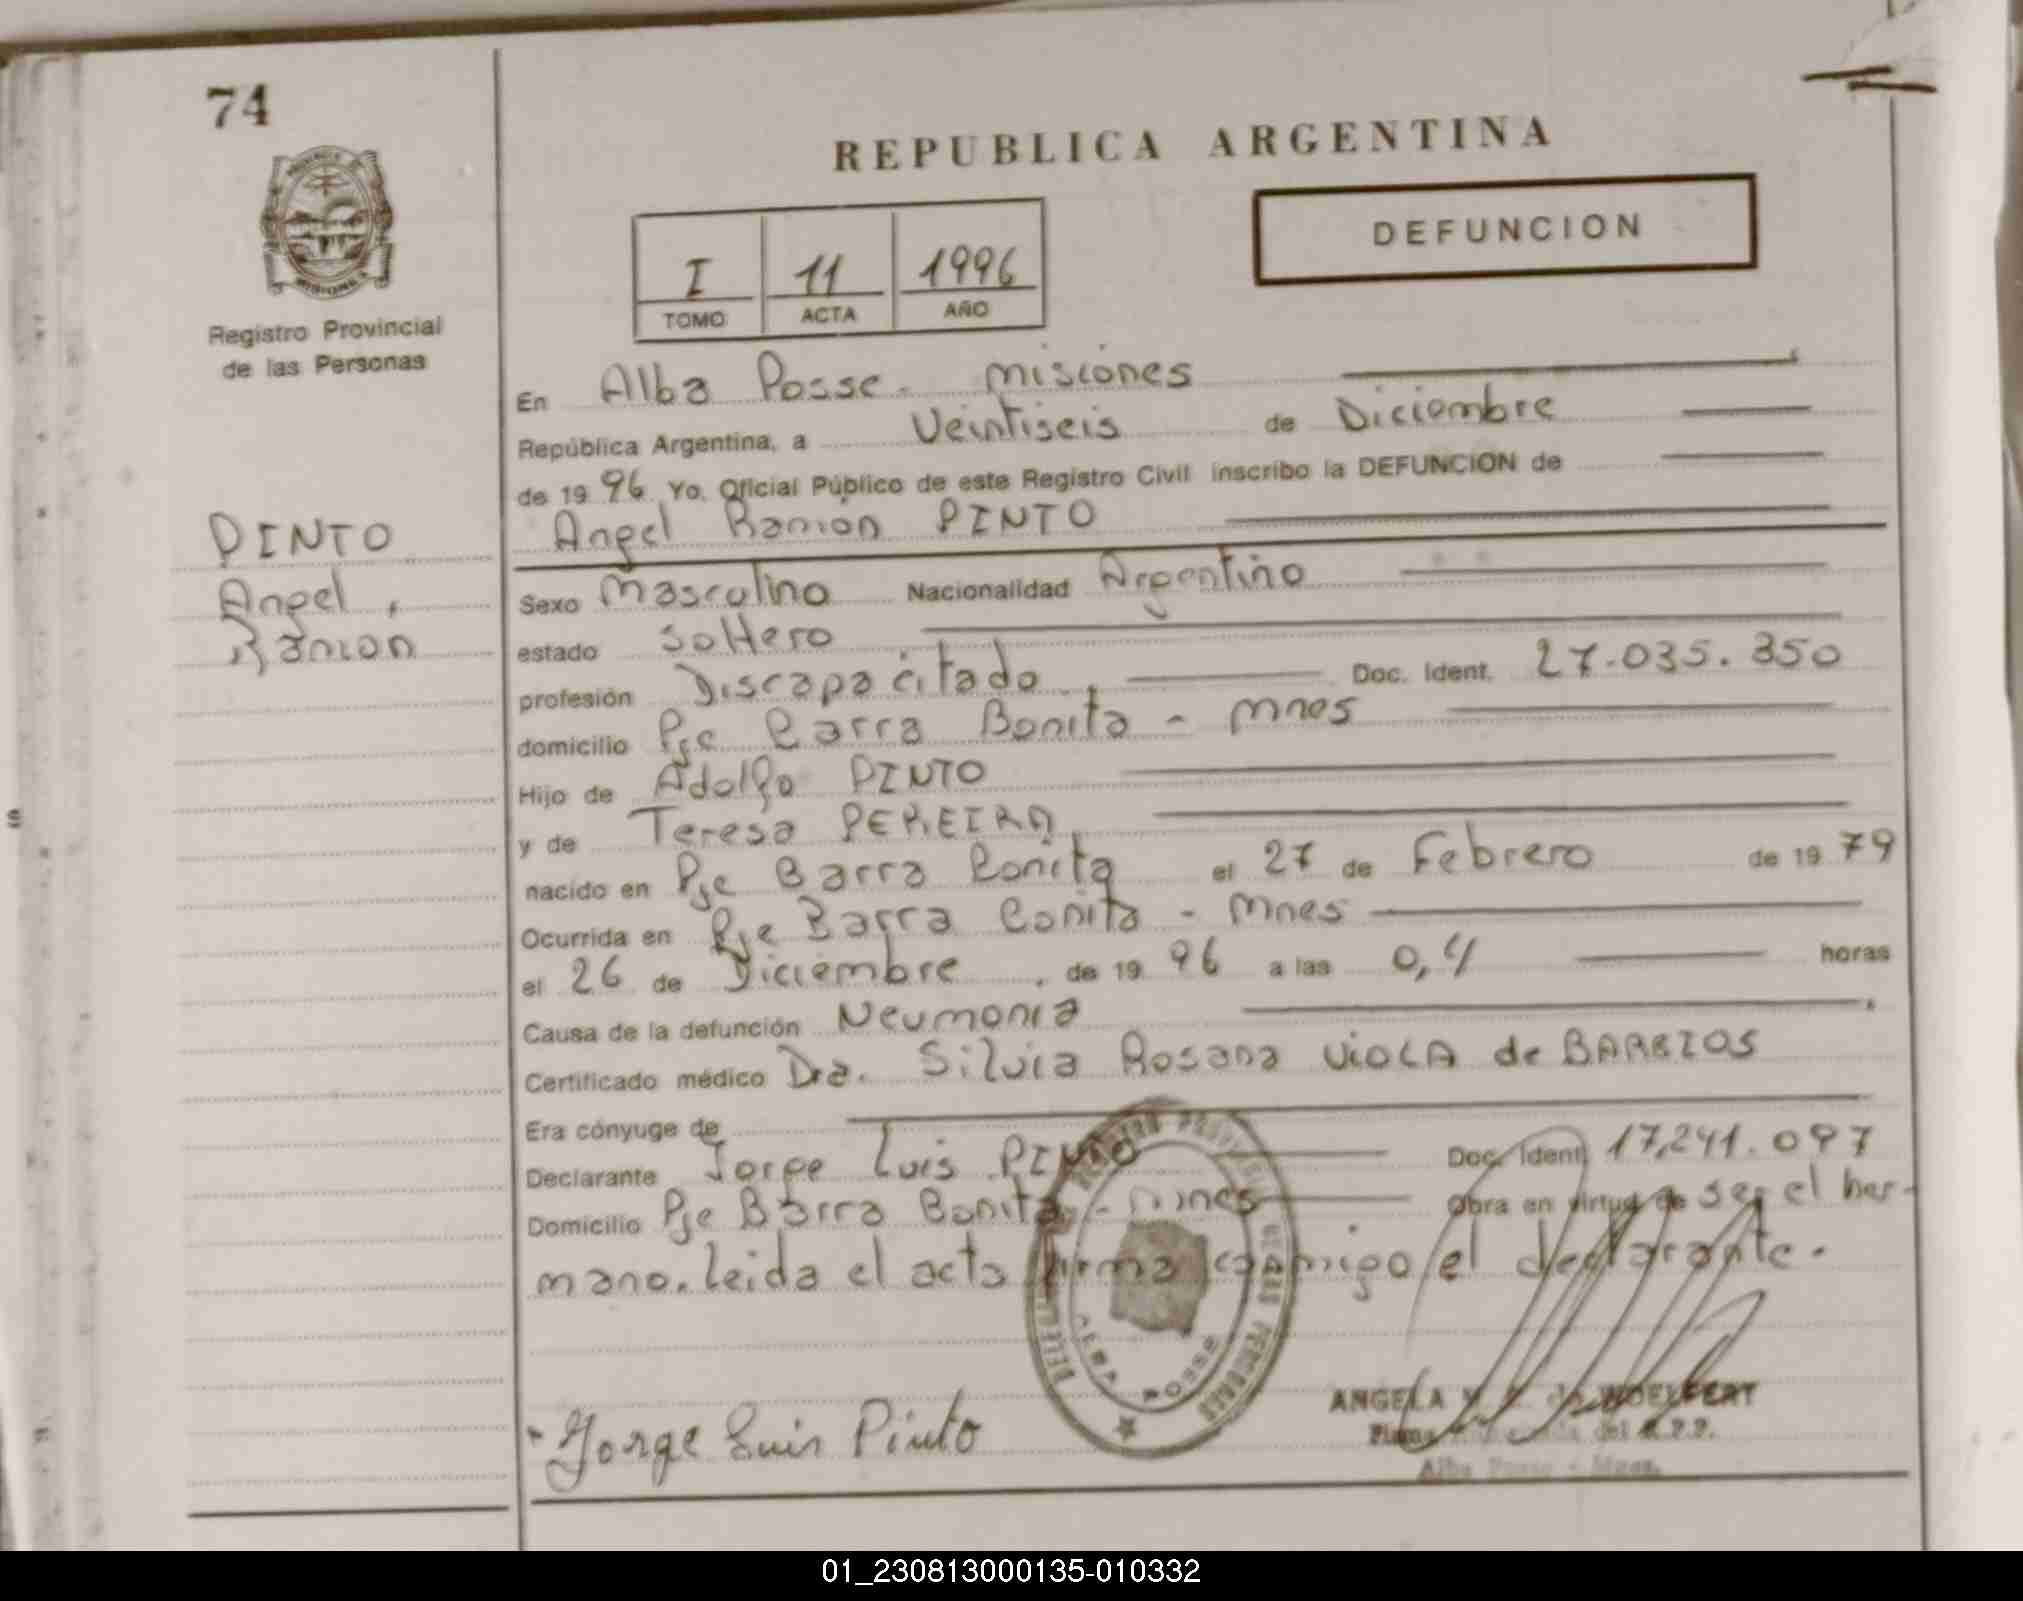 74
REPUBLICA ARGENTINA
DEFUNCION
I 11 1996
TOMO ACTA AÑO
Registro Provincial
de las Personas
En Alba Posse - Misiones
República Argentina, a Veintiseis de Diciembre
de 19 96 Yo, Oficial Público de este Registro Civil inscribo la DEFUNCION de
Angel Ramón PINTO
PINTO
Angel
Ramon
Sexo Masculino Nacionalidad Argentino
estado Soltero
profesión Discapacitado Doc. Ident. 27.035.350
domicilio Pje Barra Bonita - Mnes
Hijo de Adolfo PINTO
y de Teresa PEREIRA
nacido en Pje Barra Bonita el 27 de Febrero de 19 79
Ocurrida en Pje Barra Bonita - Mnes
el 26 de Diciembre de 19 96 a las 0,4 horas
Causa de la defunción Neumonia
Certificado médico Dra. Silvia Rosana VIOLA de BARRIOS
Era cónyuge de
Declarante Jorge Luis PINTO Doc. Ident. 17,241.097
Domicilio Pje Barra Bonita - Mnes Obra en virtud de ser el her-
mano. Leida el acta firma conmigo el declarante.
POSSE
Jorge Luis Pinto
ANGELA WOELFERT
del R.P.P.
Alba Posse - Mnes.
01_230813000135-010332